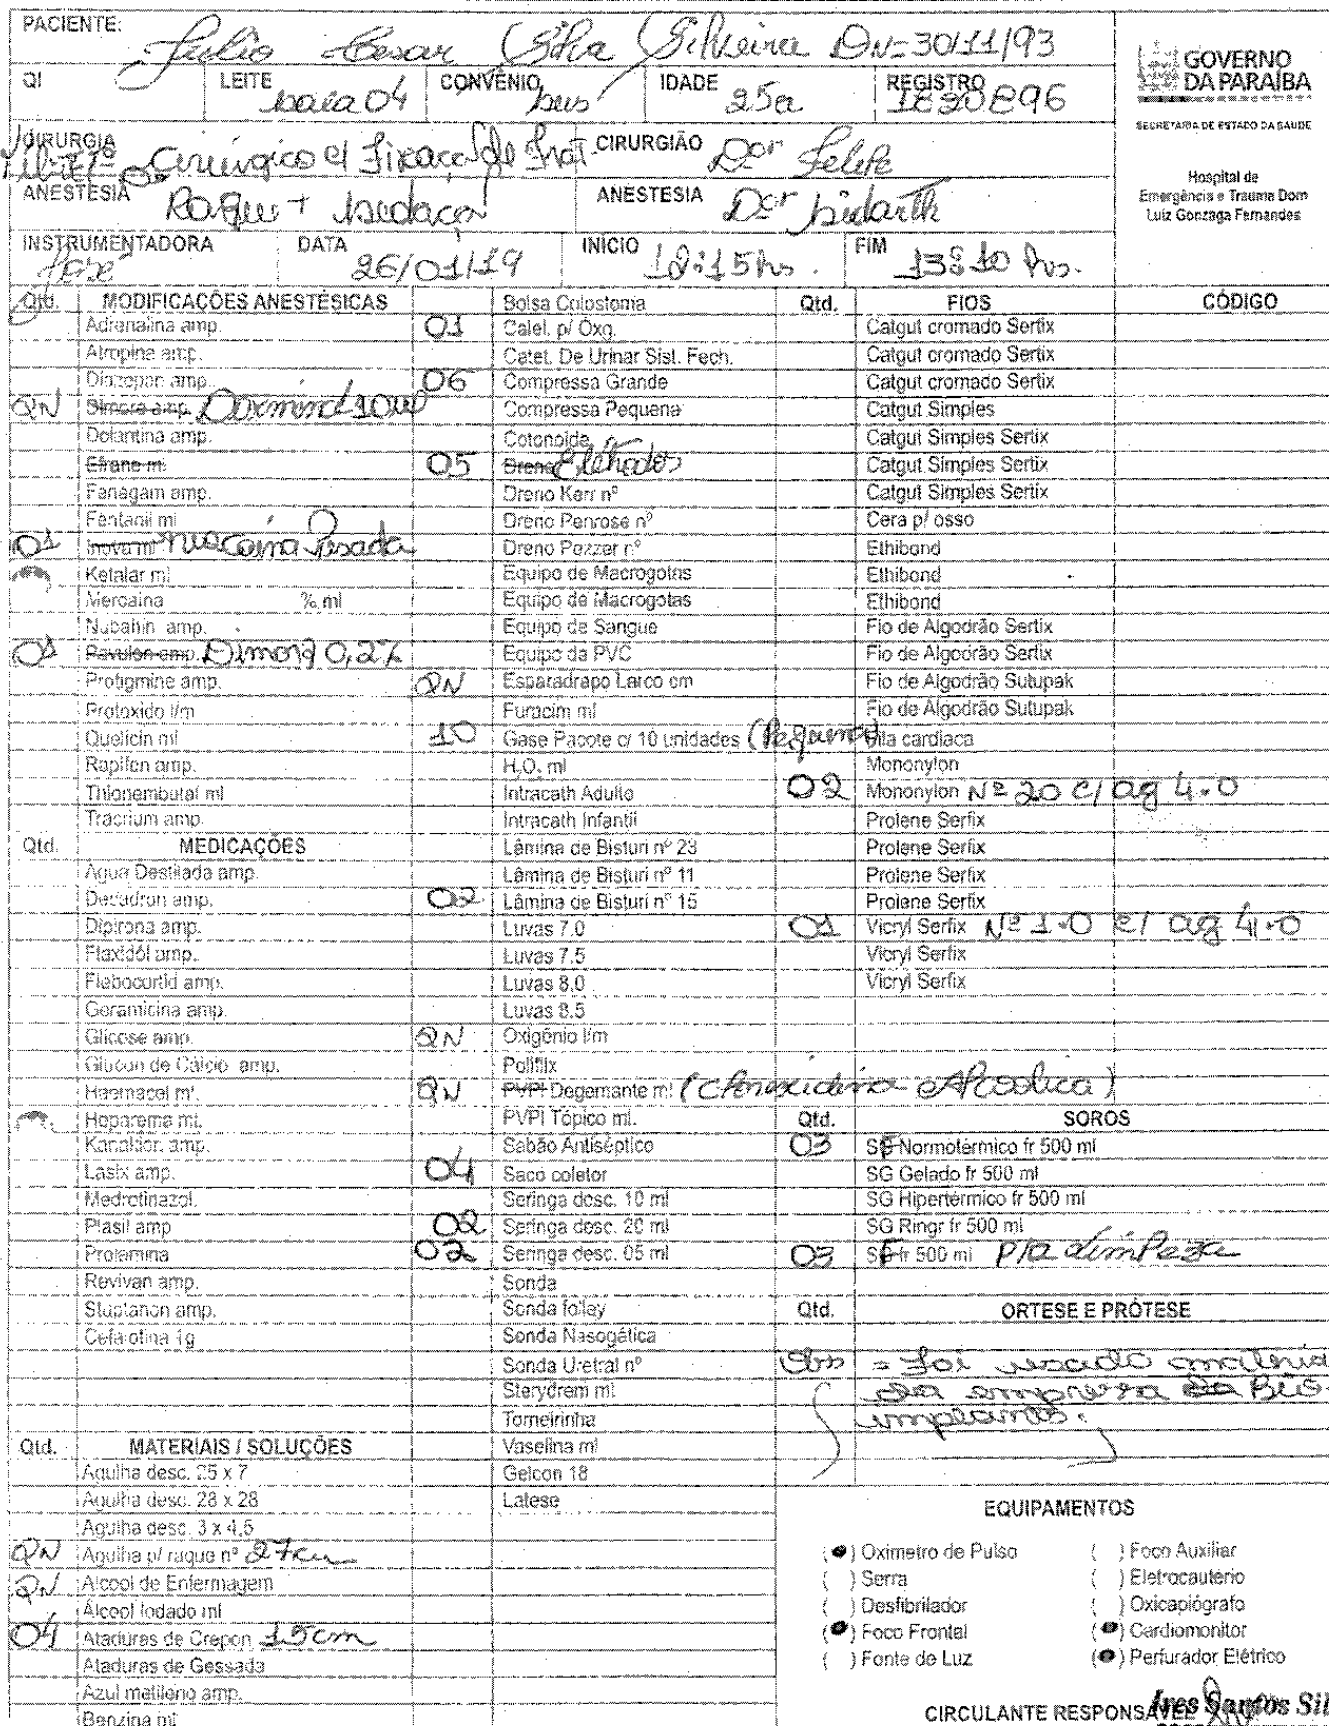 PACIENTE: Julio Cesar Silva Silveira DN=30/11/93
QI LEITE baia 04 CONVÊNIO sus IDADE 25a REGISTRO
GOVERNO
DA PARAÍBA
SECRETARIA DE ESTADO DA SAÚDE
Hospital de
Emergência e Trauma Dom
Luiz Gonzaga Fernandes
CIRURGIA Cirúrgico c/ Fixação de CIRURGIÃO Dor Felipe
ANESTESIA Raque + Sedação ANESTESIA Dor Sidarth
INSTRUMENTADORA DATA 26/01/19 INÍCIO 12:15hs. FIM 13:10 hs.
Qtd. MODIFICAÇÕES ANESTÉSICAS
Adrenalina amp.
Atropina amp.
Diazepan amp.
QN Dimora amp. Dormind 10mg
Dolantina amp.
Efrane ml
Fenegam amp.
Fentanil ml
01 Inova ml Pesada
Ketalar ml
Mercaina %, ml
Nubahin amp.
01 Pavulon amp. Dimorf 0,2%
Protigmine amp.
Protoxido l/m
Quelicin ml
Rapifen amp.
Thionembutal ml
Tracrium amp.
Qtd. MEDICAÇÕES
Água Destilada amp.
Decadron amp.
Dipirona amp.
Flaxidól amp.
Flebocortid amp.
Geramicina amp.
Glicose amp.
Glucon de Cálcio amp.
Haemacel ml.
Heparema ml.
Kanakion amp.
Lasix amp.
Medrotinazol.
Plasil amp
Prolamina
Revivan amp.
Stuptanon amp.
Cefalotina 1g
Qtd. MATERIAIS / SOLUÇÕES
Agulha desc. 25 x 7
Agulha desc. 28 x 28
Agulha desc. 3 x 4,5
QN Agulha p/ raque nº 27
QN Alcool de Enfermagem
Álcool Iodado ml
04 Ataduras de Crepon 15cm
Ataduras de Gessada
Azul metileno amp.
Benzina ml
Bolsa Colostoma
01 Calet. p/ Óxg.
Catet. De Urinar Sist. Fech.
06 Compressa Grande
Compressa Pequena
Cotonoide
05 Dreno Eletrodos
Dreno Kerr nº
Dreno Penrose nº
Dreno Pezzer nº
Equipo de Macrogotas
Equipo de Macrogotas
Equipo de Sangue
Equipo da PVC
QN Esparadrapo Larco cm
Furacim ml
10 Gase Pacote c/ 10 unidades (Pequeno)
H₂O. ml
Intracath Adulto
Intracath Infantil
Lâmina de Bisturi nº 23
Lâmina de Bisturi nº 11
02 Lâmina de Bisturi nº 15
Luvas 7.0
Luvas 7.5
Luvas 8.0
Luvas 8.5
QN Oxigênio l/m
Polifix
QN PVPI Degemante ml (Clorexidina Alcoolica)
PVPI Tópico ml.
Sabão Antiséptico
04 Saco coletor
Seringa desc. 10 ml
02 Seringa desc. 20 ml
02 Seringa desc. 05 ml
Sonda
Sonda folley
Sonda Nasogática
Sonda Uretral nº
Sterydrem ml
Torneirinha
Vaselina ml
Gelcon 18
Latese
Qtd. FIOS CÓDIGO
Catgut cromado Sertix
Catgut cromado Sertix
Catgut cromado Sertix
Catgut Simples
Catgut Simples Sertix
Catgut Simples Sertix
Catgut Simples Sertix
Cera p/ osso
Ethibond
Ethibond
Ethibond
Fio de Algodrão Sertix
Fio de Algodrão Sertix
Fio de Algodrão Sutupak
Fio de Algodrão Sutupak
Fita cardiaca
Mononylon
02 Mononylon Nº 20 c/ ag 4.0
Prolene Serfix
Prolene Serfix
Prolene Serfix
Prolene Serfix
01 Vicryl Serfix Nº 1.0 c/ ag 4.0
Vicryl Serfix
Vicryl Serfix
Qtd. SOROS
03 SF Normotérmico fr 500 ml
SG Gelado fr 500 ml
SG Hipertérmico fr 500 ml
SG Ringr fr 500 ml
03 SF fr 500 ml p/a limpeza
Qtd. ORTESE E PRÓTESE
Obs = foi usado material
da empresa da Bio
implantes.
EQUIPAMENTOS
(●) Oximetro de Pulso ( ) Foco Auxiliar
( ) Serra ( ) Eletrocautério
( ) Desfibrilador ( ) Oxicapiógrafo
(●) Foco Frontal (●) Cardiomonitor
( ) Fonte de Luz (●) Perfurador Elétrico
CIRCULANTE RESPONSÁVEL Ines Santos Sil